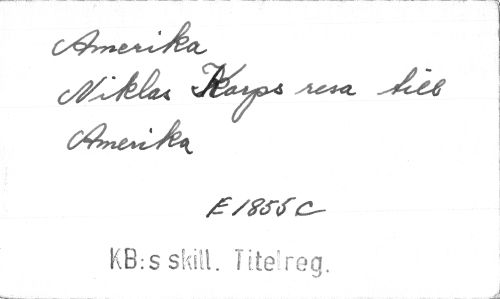 Amerika
Niklas Karps resa till
Amerika
E 1855 C
KB:s skill. Titelreg.